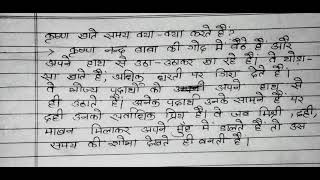 कृष्ण खाते समय क्या-क्या करते हैं?
> कृष्ण नन्द बाबा की गोद में बैठे हैं और
अपने हाथ से उठा-उठाकर खा रहे हैं। वे थोड़ा-
सा खाते हैं, अधिक धरती पर गिरा देते हैं।
वे भोज्य पदार्थों को अपने हाथ से
ही उठाते हैं। अनेक पदार्थ उनके सामने हैं पर
दही उनको सर्वाधिक प्रिय है। वे जब मिश्री, दही,
माखन मिलाकर अपने मुँह में डालते हैं तो उस
समय की शोभा देखते ही बनती है।